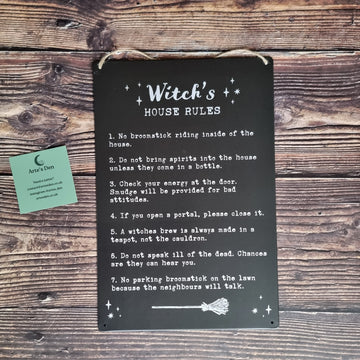 Witch's
HOUSE RULES
1. No broomstick riding inside of the
house.
2. Do not bring spirits into the house
unless they come in a bottle.
3. Check your energy at the door.
Smudge will be provided for bad
attitudes.
4. If you open a portal, please close it.
5. A witches brew is always made in a
teapot, not the cauldron.
6. Do not speak ill of the dead. Chances
are they can hear you.
7. No parking broomstick on the lawn
because the neighbours will talk.
Arte's Den